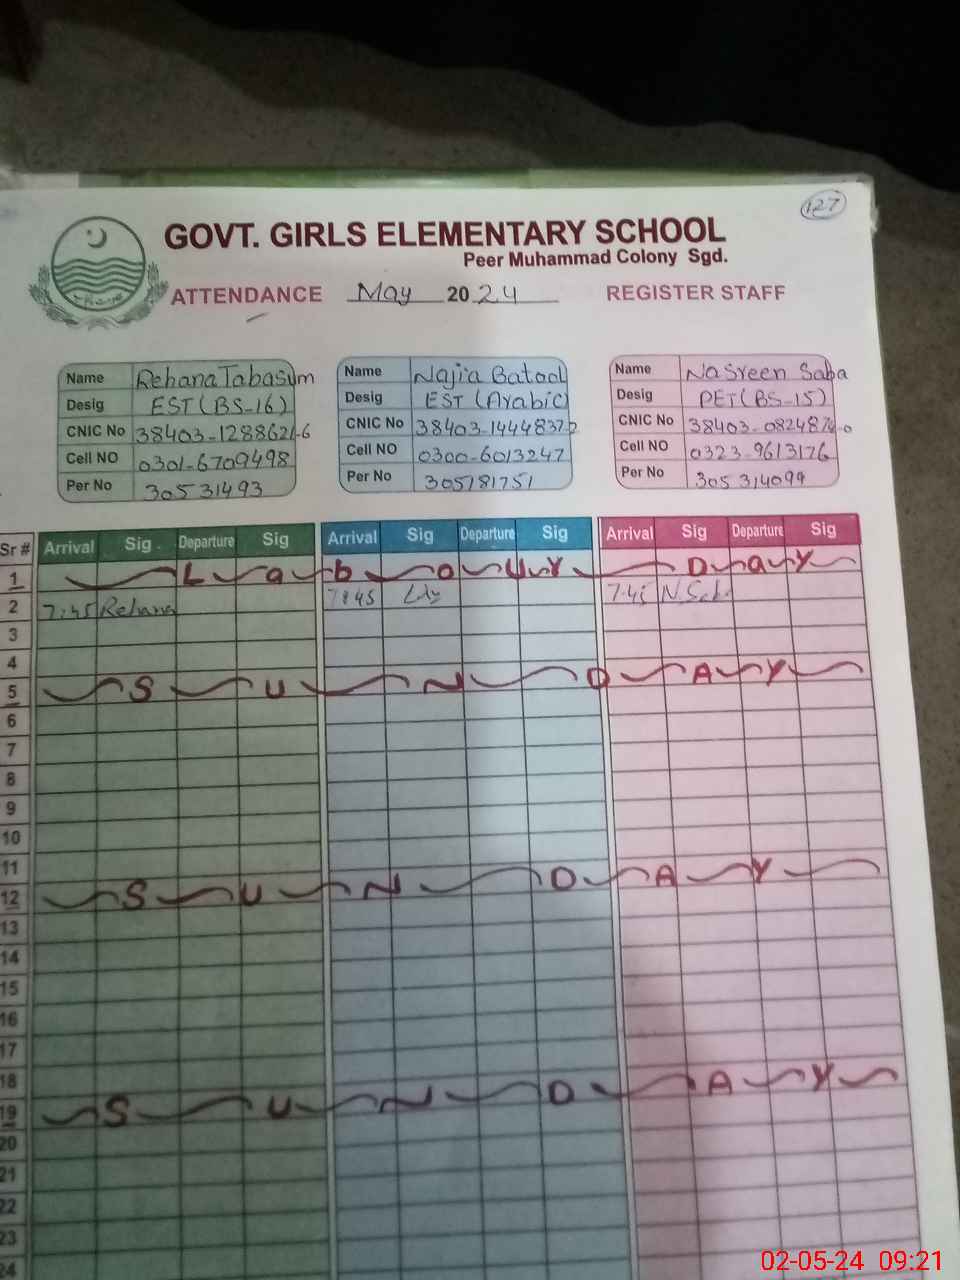 127
GOVT. GIRLS ELEMENTARY SCHOOL
Peer Muhammad Colony Sgd.
ATTENDANCE May 2024 REGISTER STAFF
Name Rehana Tabasum Name Najia Batool Name Nasreen Saba
Desig EST (BS-16) Desig EST (Arabic) Desig PET (BS-15)
CNIC No 38403-1288621-6 CNIC No 38403-1444837-2 CNIC No 38403-0824874-0
Cell NO 0301-6709498 Cell NO 0300-6013247 Cell NO 0323-9613176
Per No 30531493 Per No 305181751 Per No 305314099
Sr # Arrival Sig. Departure Sig Arrival Sig Departure Sig Arrival Sig Departure Sig
1 Labour Day
2 7:45 Rehana 7:45 7:45 N. Saba
3
4
5 SUNDAY
6
7
8
9
10
11
12 SUNDAY
13
14
15
16
17
18
19 SUNDAY
20
21
22
23
24
02-05-24 09:21